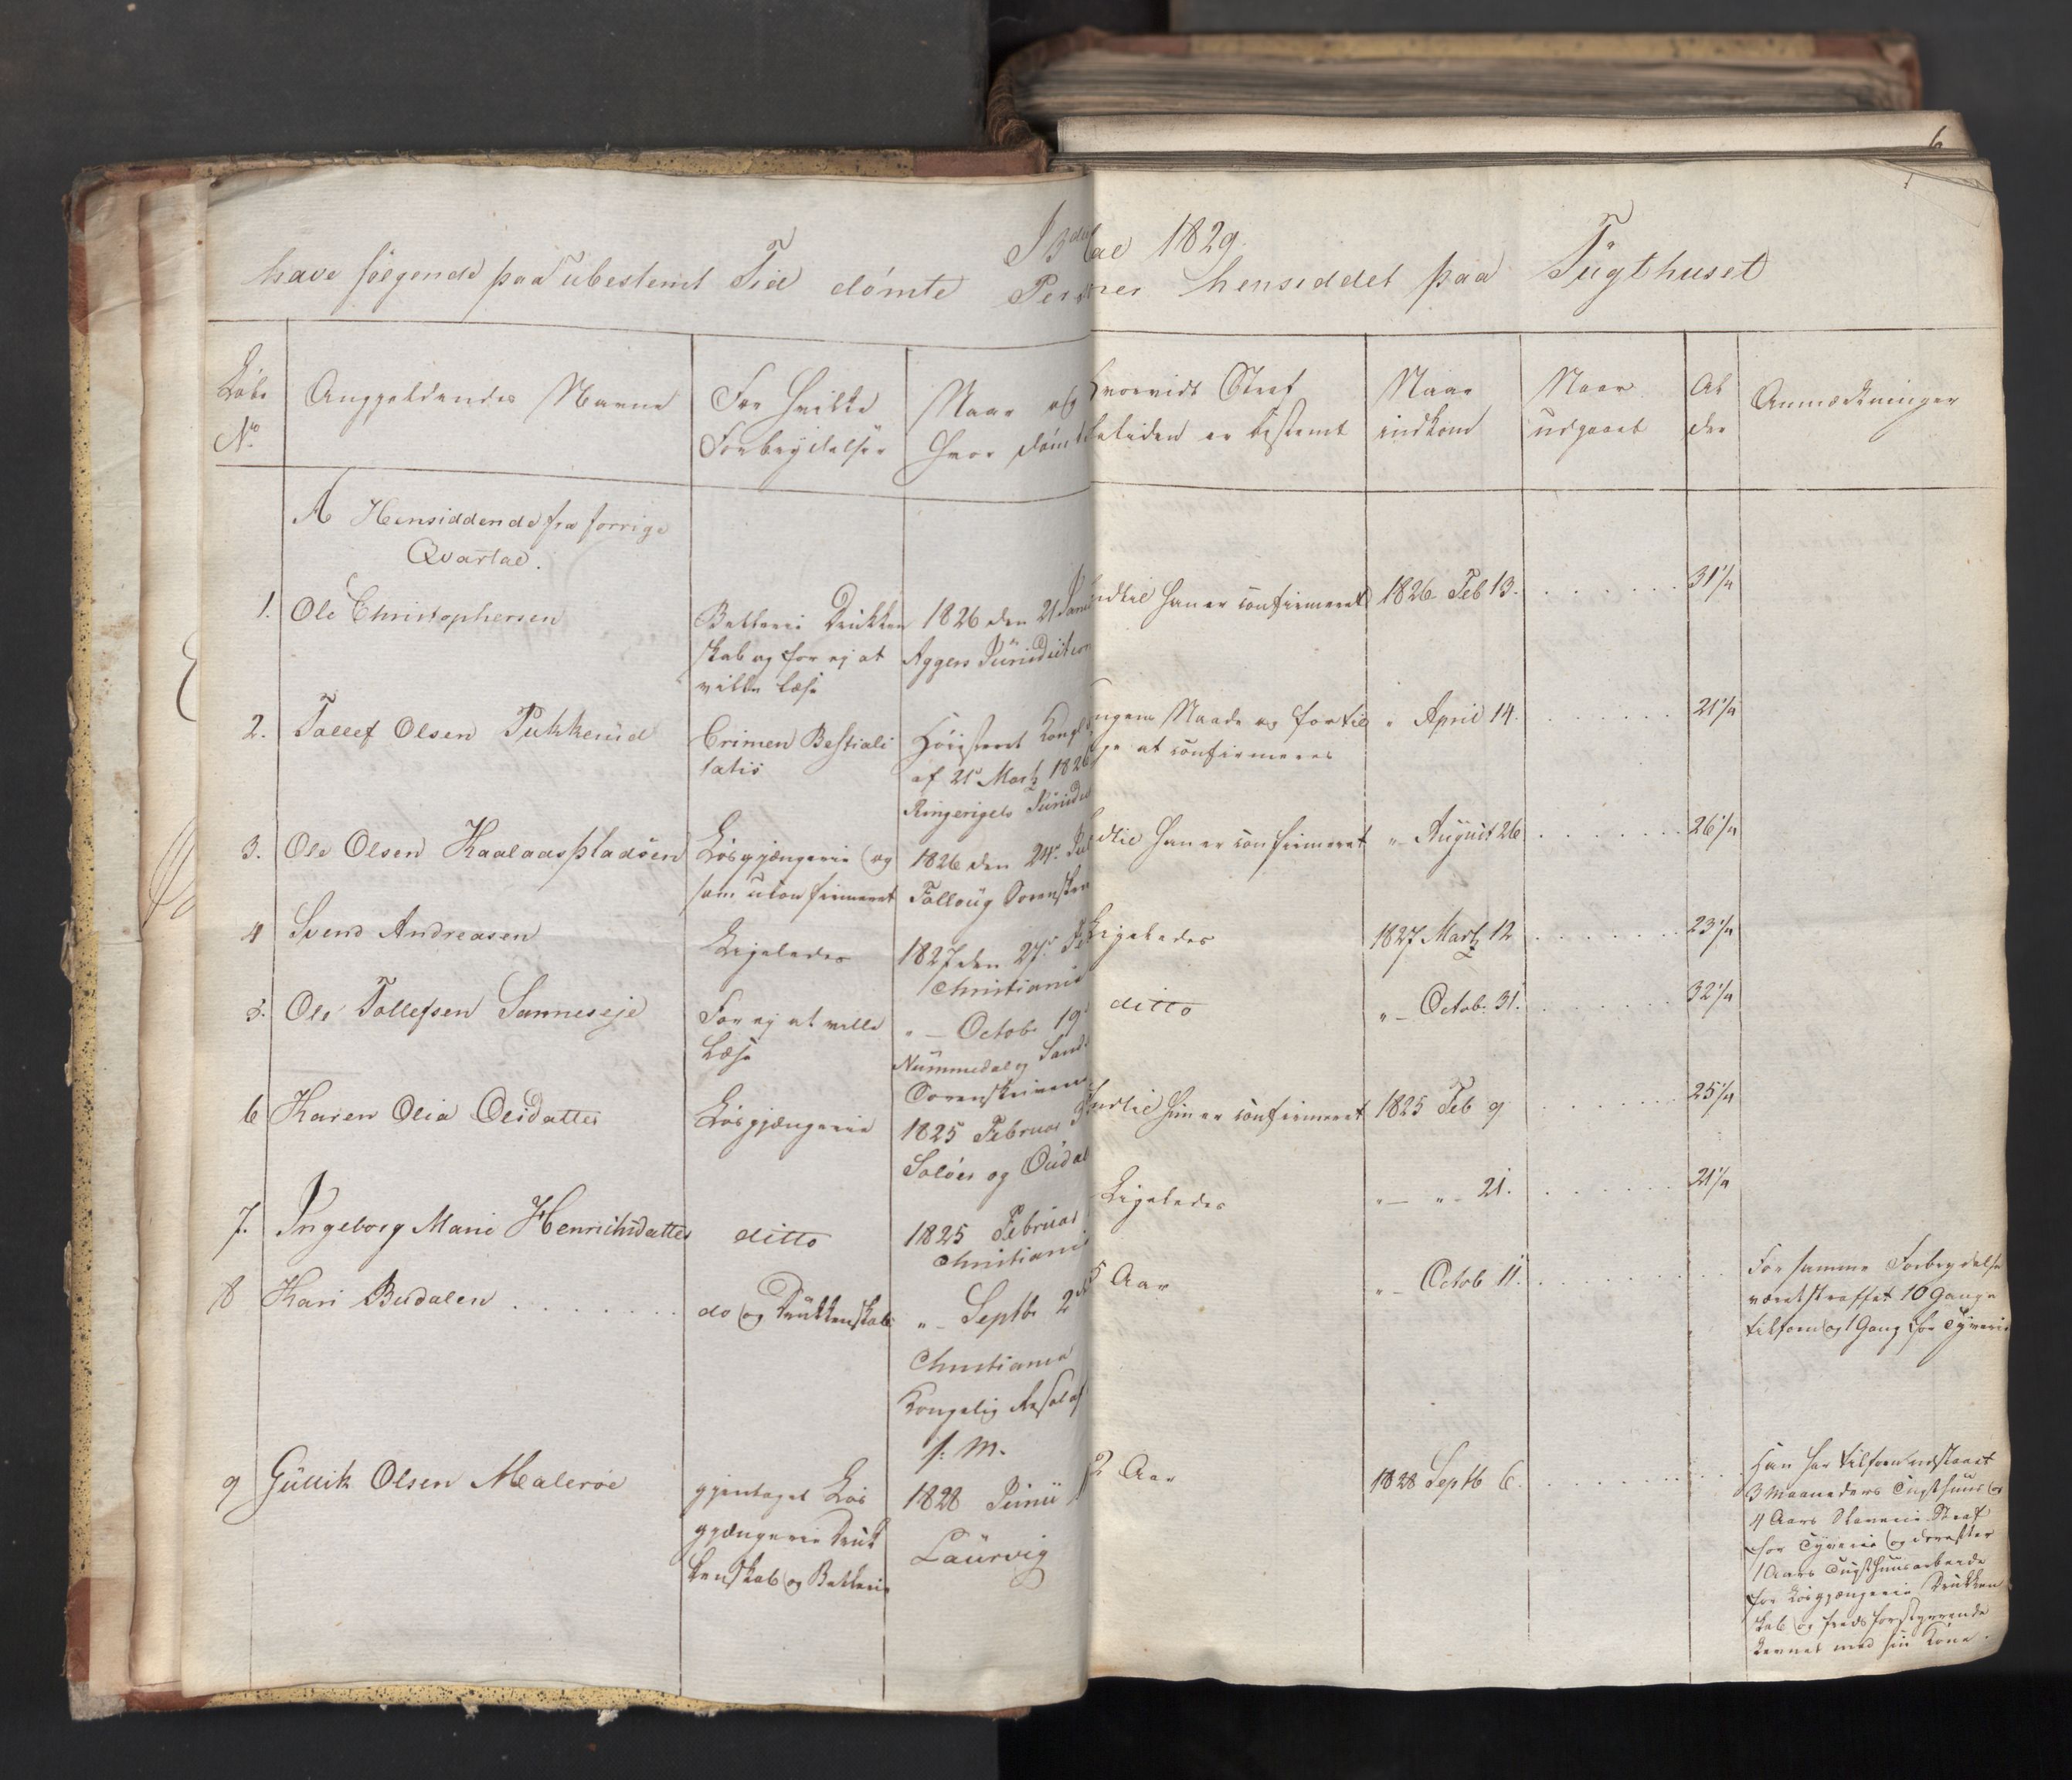 6
1829
have følgende paa ubestemt Tid dömte hensiddet paa Tügthuset
Löbe No
Anggjeldendes Navne
For hvilke Forbrydelser
Naar og hvor dömt
Hvorvidt Straf
tiden er bestemt
Naar indkom
Naar udgaaet
Al
der
Anmærkninger
A Hensiddende fra forrige
Qvartal.
1. Ole Christophersen
Betlerie Drukken
skab og for ej at
ville læse
1826 den 21
Aggers Jürisdiction
indtil han er confirmeret
1826 Feb 13.
31 1/4
2. Tollef Olsen Pukkerüd
Crimen Bestiali
tatis
Höiesteret
af 21de Martz 1826
Ringerigets
Naade og for til
at confirmeres
" April 14.
21 1/4
3. Ole Olsen Kaalaaspladsen
Lösgjængerie og
som uconfirmeret
1826 den 24de
Folloüg Sorenskr
indtil han er confirmeret
" August 26
26 1/4
4 Svend Andreasen
Ligeledes
1827 den 27de
Christiania
Ligeledes
1827 Martz 12
23 1/4
5. Ole Tollefsen Sanneseje
For ej at ville
Læse
" – Octob. 19
Nummedal og Sands
Sorenskriveri
ditto
" – Octob. 31.
32 1/4
6 Karen Olia Olsdatter
Lösgjængerie
1825 Februar
Soløer og Oüdal
indtil hun er confirmeret
1825 Feb 9
25 1/4
7. Ingeborg Marie Henrichsdatter
ditto
1825 Februar
Christiania
Ligeledes
" – " – 21.
21 1/4
8 Kari Budalen
do og Drükkenskab
" – Septb. 2
Christiania
Kongelig Resol af
s. M.
5 Aar
" – Octob 11.
For samme Forbrydelse
været straffet 10 Gange
tilforn og 1 Gang for Tyverie
9 Güllik Olsen Malerøe
gjentaget Lös
gjængerie Druk
kenskab og Betlerie
1828 Junii
Laürvig
2 Aar
1828 Septb 6.
Han har tilforn udstaaet
3 Maaneders Tugthuus og
4 Aars Slaverie Straf
for Tyverie og derefter
1 Aars Tugthuusarbeide
for Lösgjængerie Drukken
skab og fredsforstyrrende
Levnet med sin Kone.